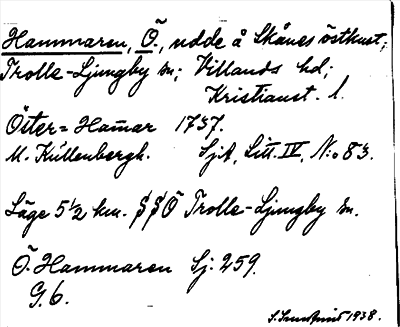 Hammaren, Ö., udde å Skånes östkust;
Trolle-Ljungby sn; Villands hd;
Kristianst. l.
Öster=Ham̄ar 1737.
M. Kullenbergh. SjA, Litt. IV, N:o 83.
Läge 5 1/2 km. SSÖ Trolle-Ljungby sn.
Ö. Hammaren Sj: 259.
G. 6.
1938.